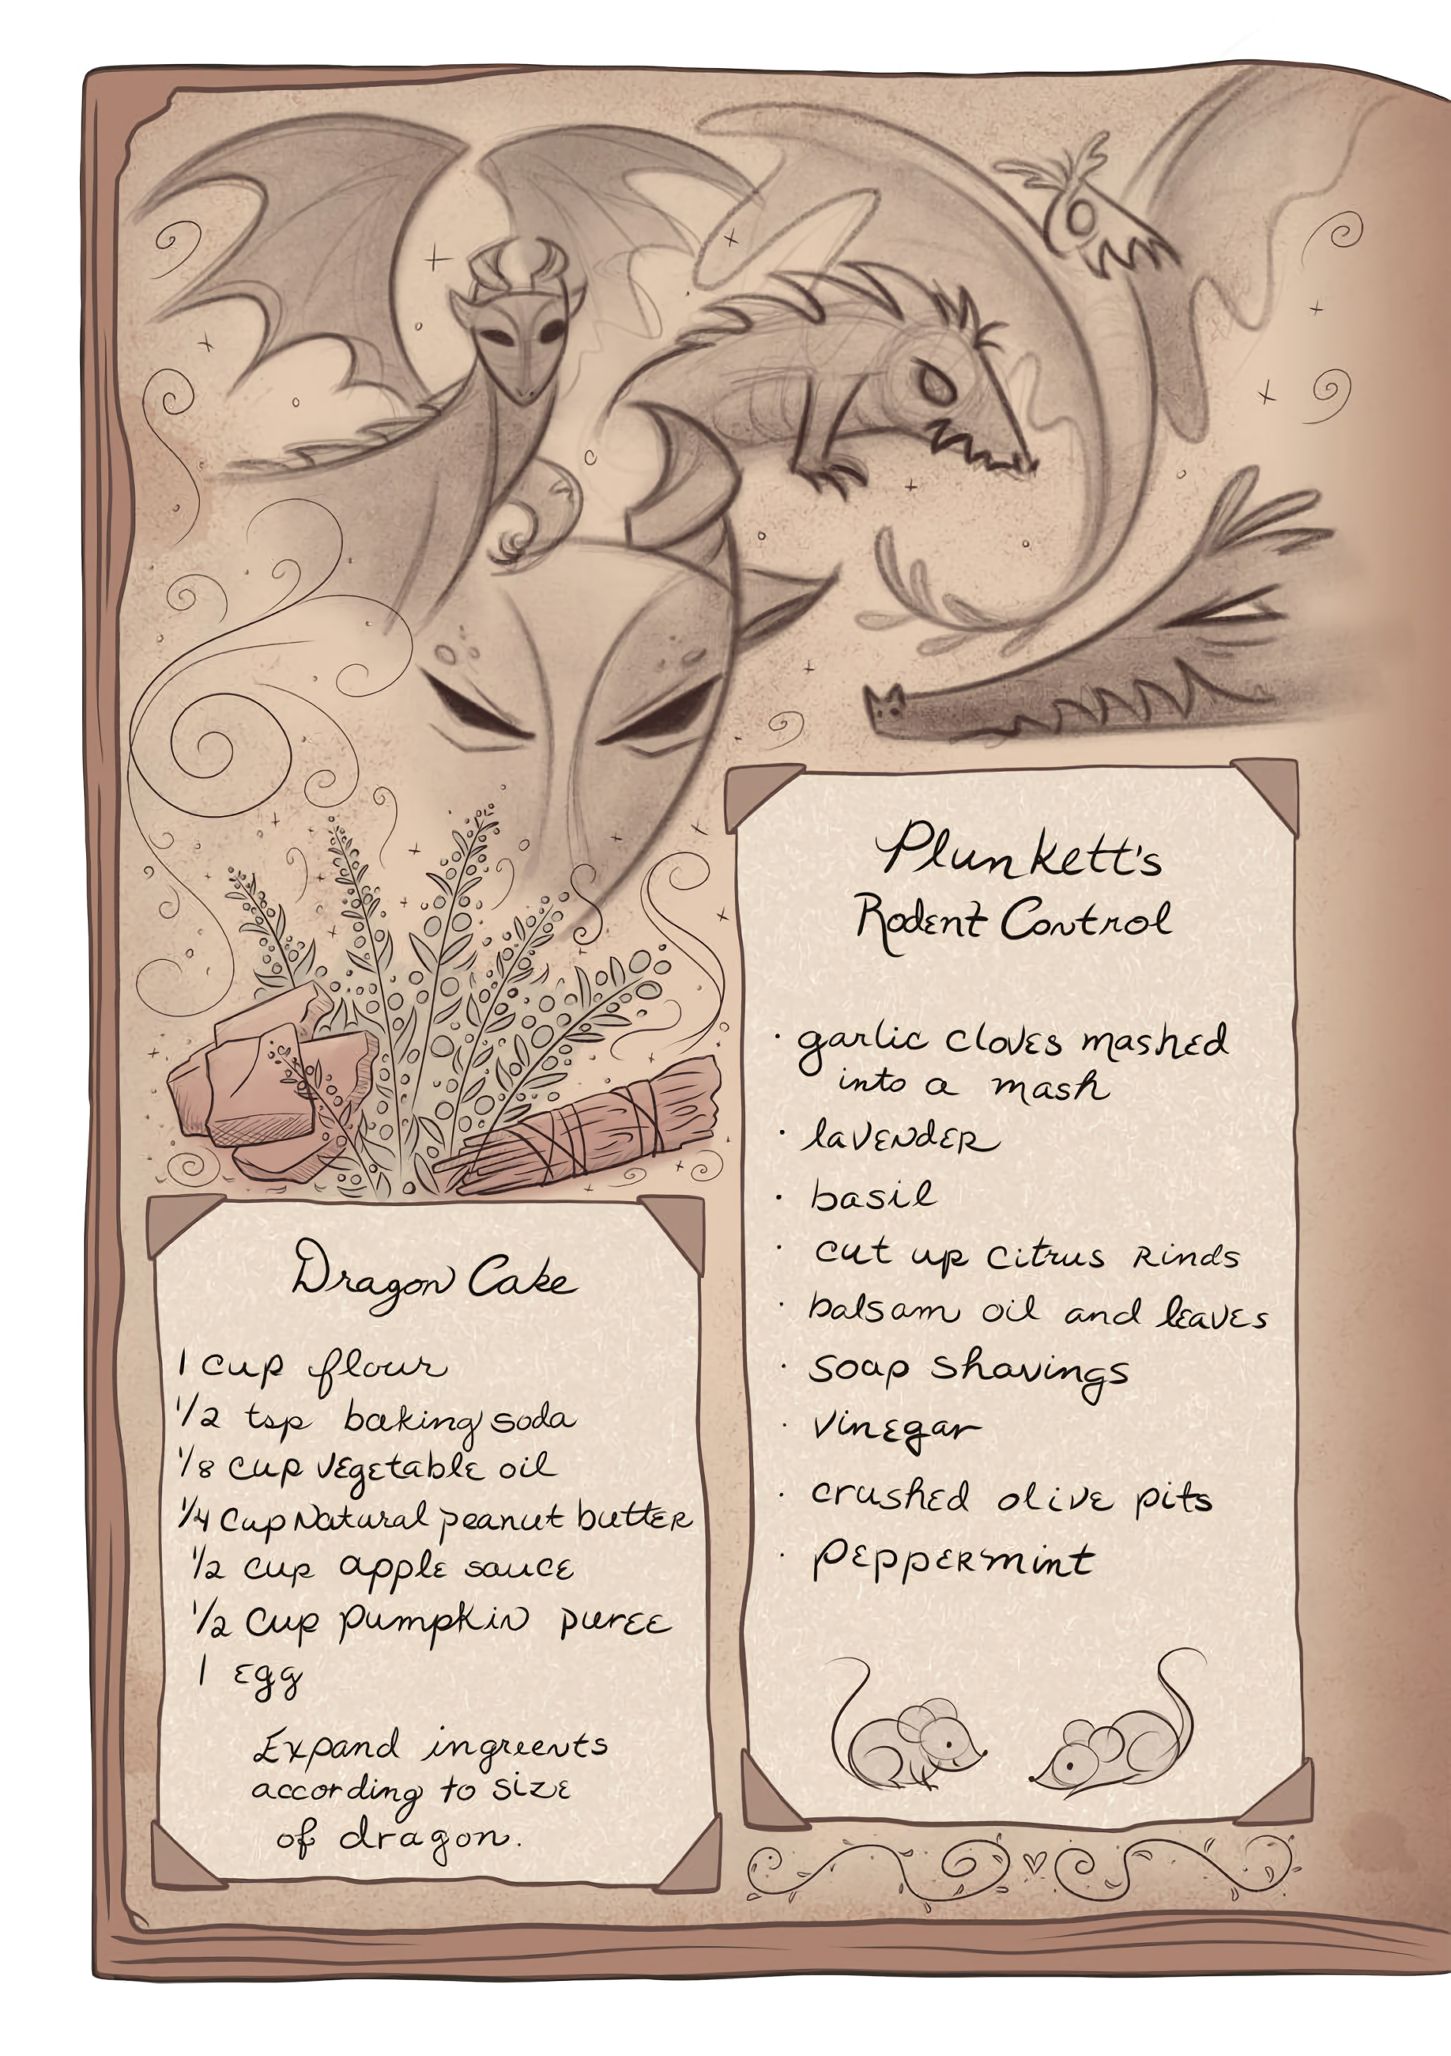 Dragon Cake
1 cup flour
1/2 tsp baking soda
1/8 cup vegetable oil
1/4 cup Natural peanut butter
1/2 cup apple sauce
1/2 cup pumpkin puree
1 egg
Expand ingreents
according to size
of dragon.
Plunkett's
Rodent Control
· garlic cloves mashed
into a mash
· lavender
· basil
· cut up citrus rinds
· balsam oil and leaves
· soap shavings
· vinegar
· crushed olive pits
· peppermint